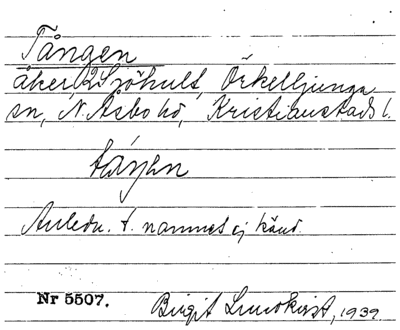 Tången
åker, 2 Sjöhult, Örkelljunga
sn, N. Åsbo hd, Kristianstads l.
tåŋen
Anledn. t. namnet ej känd.
Nr 5507. Birgit Lundkvist, 1939.